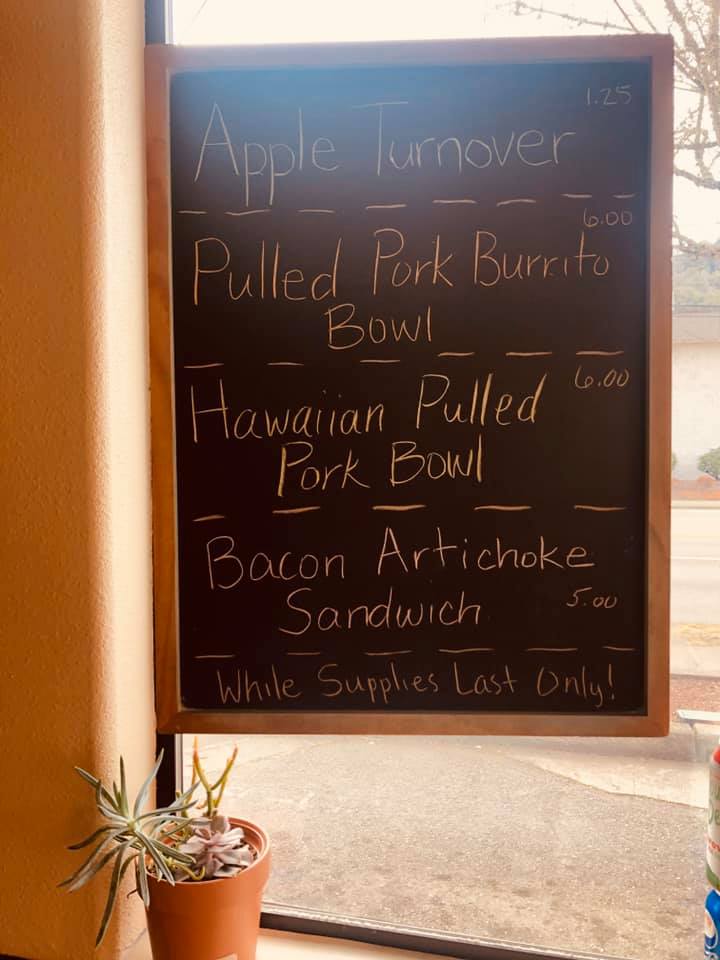 1.25
Apple Turnover
6.00
Pulled Pork Burrito
Bowl
6.00
Hawaiian Pulled
Pork Bowl
Bacon Artichoke
Sandwich 5.00
While Supplies Last Only!